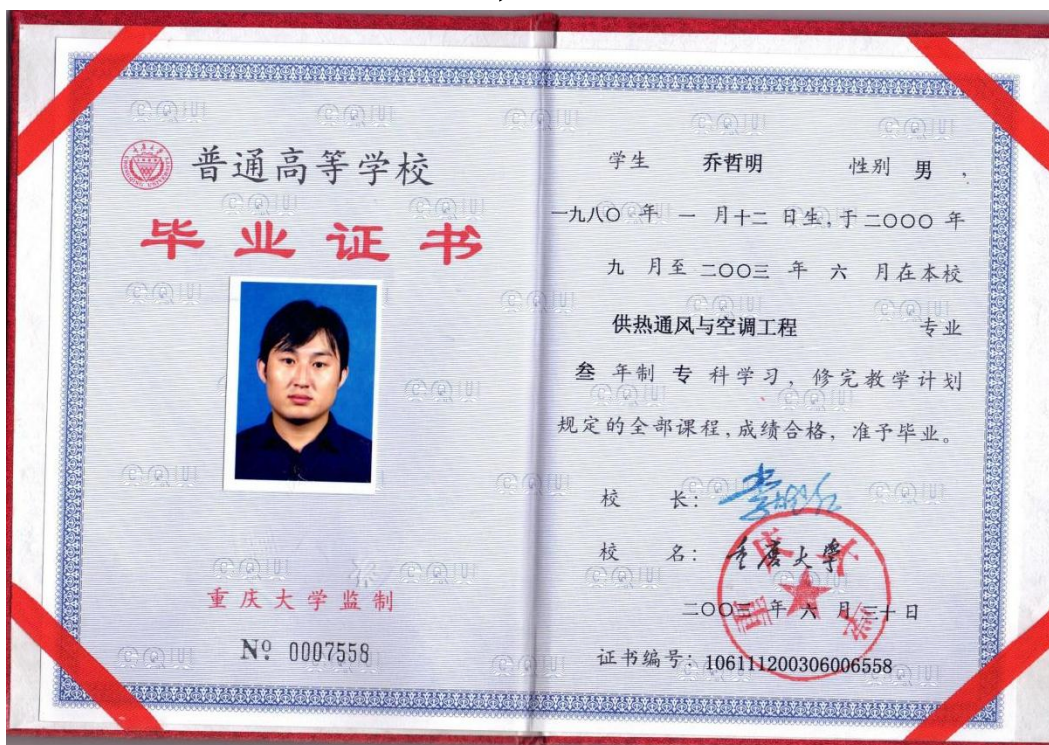 普通高等学校
毕业证书
重庆大学监制
№ 0007558
学生 乔哲明 性别 男 ，
一九八〇 年 一 月十二 日生，于二〇〇〇 年
九 月至 二〇〇三 年 六 月在本校
供热通风与空调工程 专业
叁 年制 专 科学习，修完教学计划
规定的全部课程，成绩合格，准予毕业。
校 长：
校 名：重庆大学
二〇〇三 年 六 月三十日
重庆大学
证书编号：106111200306006558